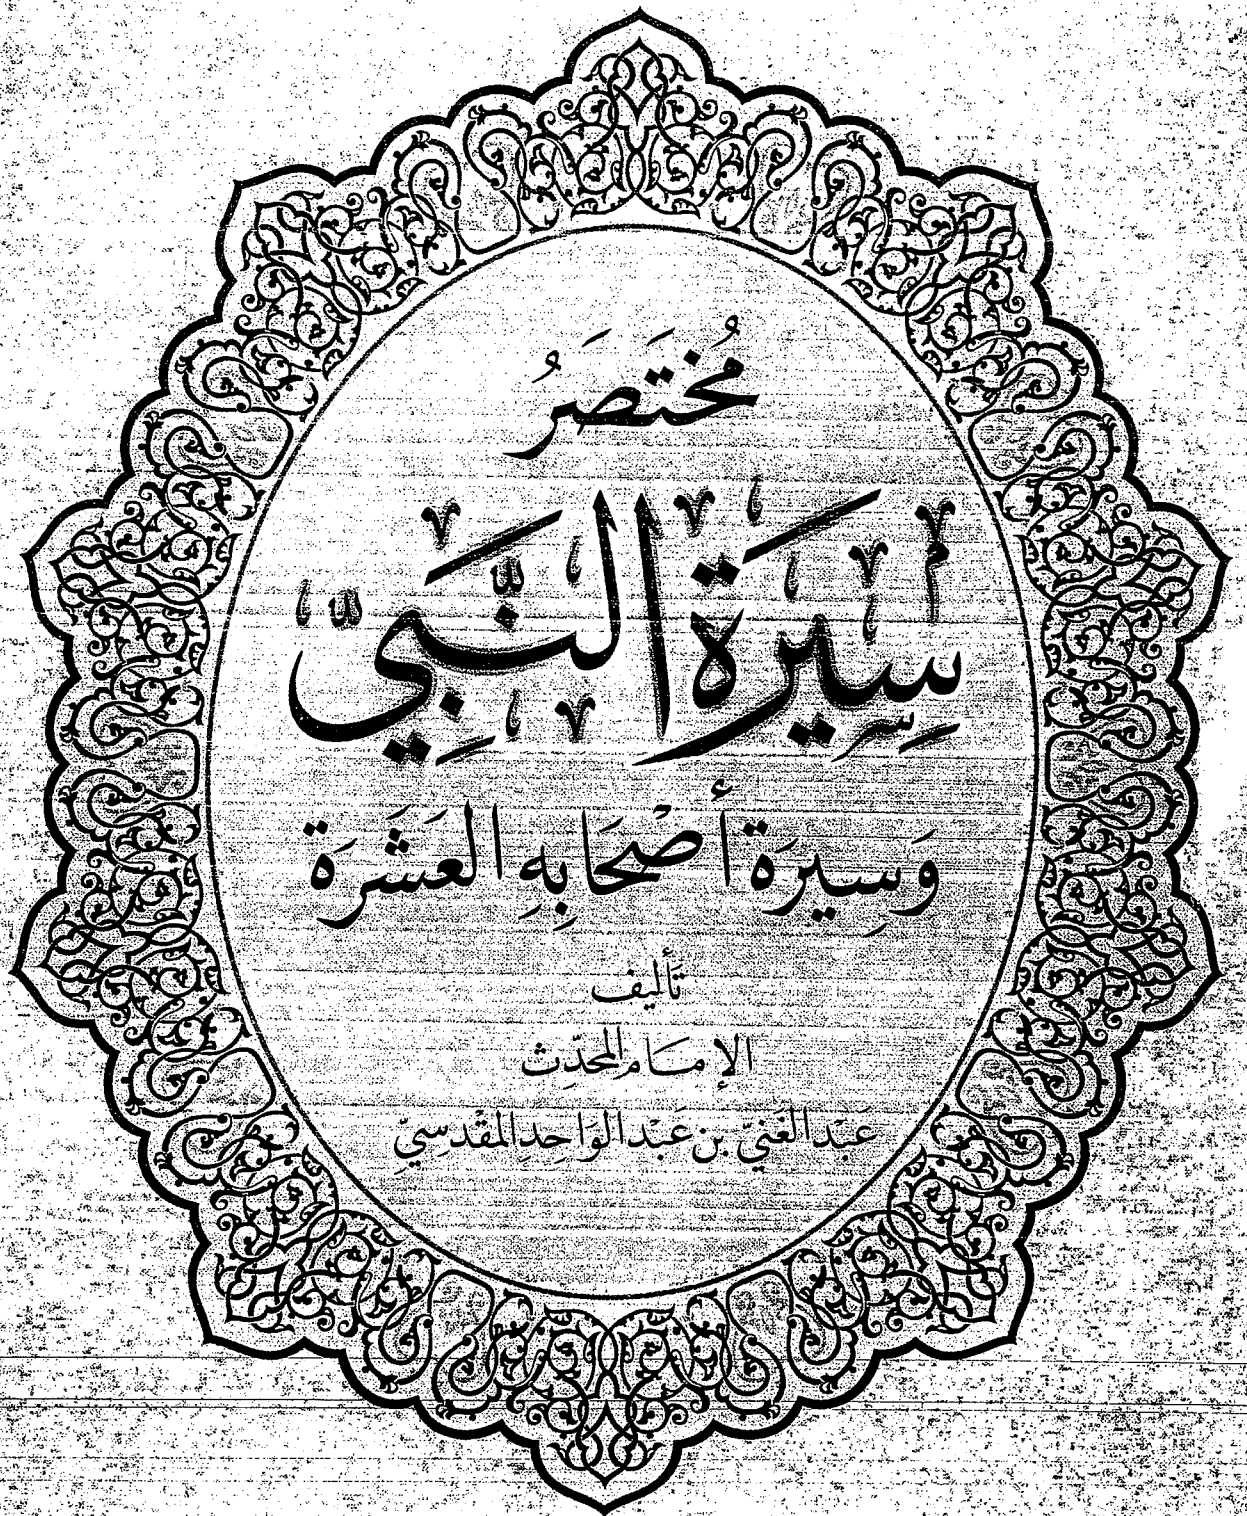 مُختَصَرُ
سِيرَة النَّبِيّ
وَسِيرَة أَصْحَابِهِ العَشَرَة
تَأليف
الإمَام المحَدِّث
عَبْد الغَنيّ بن عَبْد الوَاحِد المقْدسِيّ